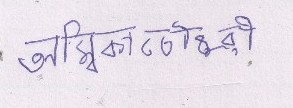 অম্বিকা চৌধুরী